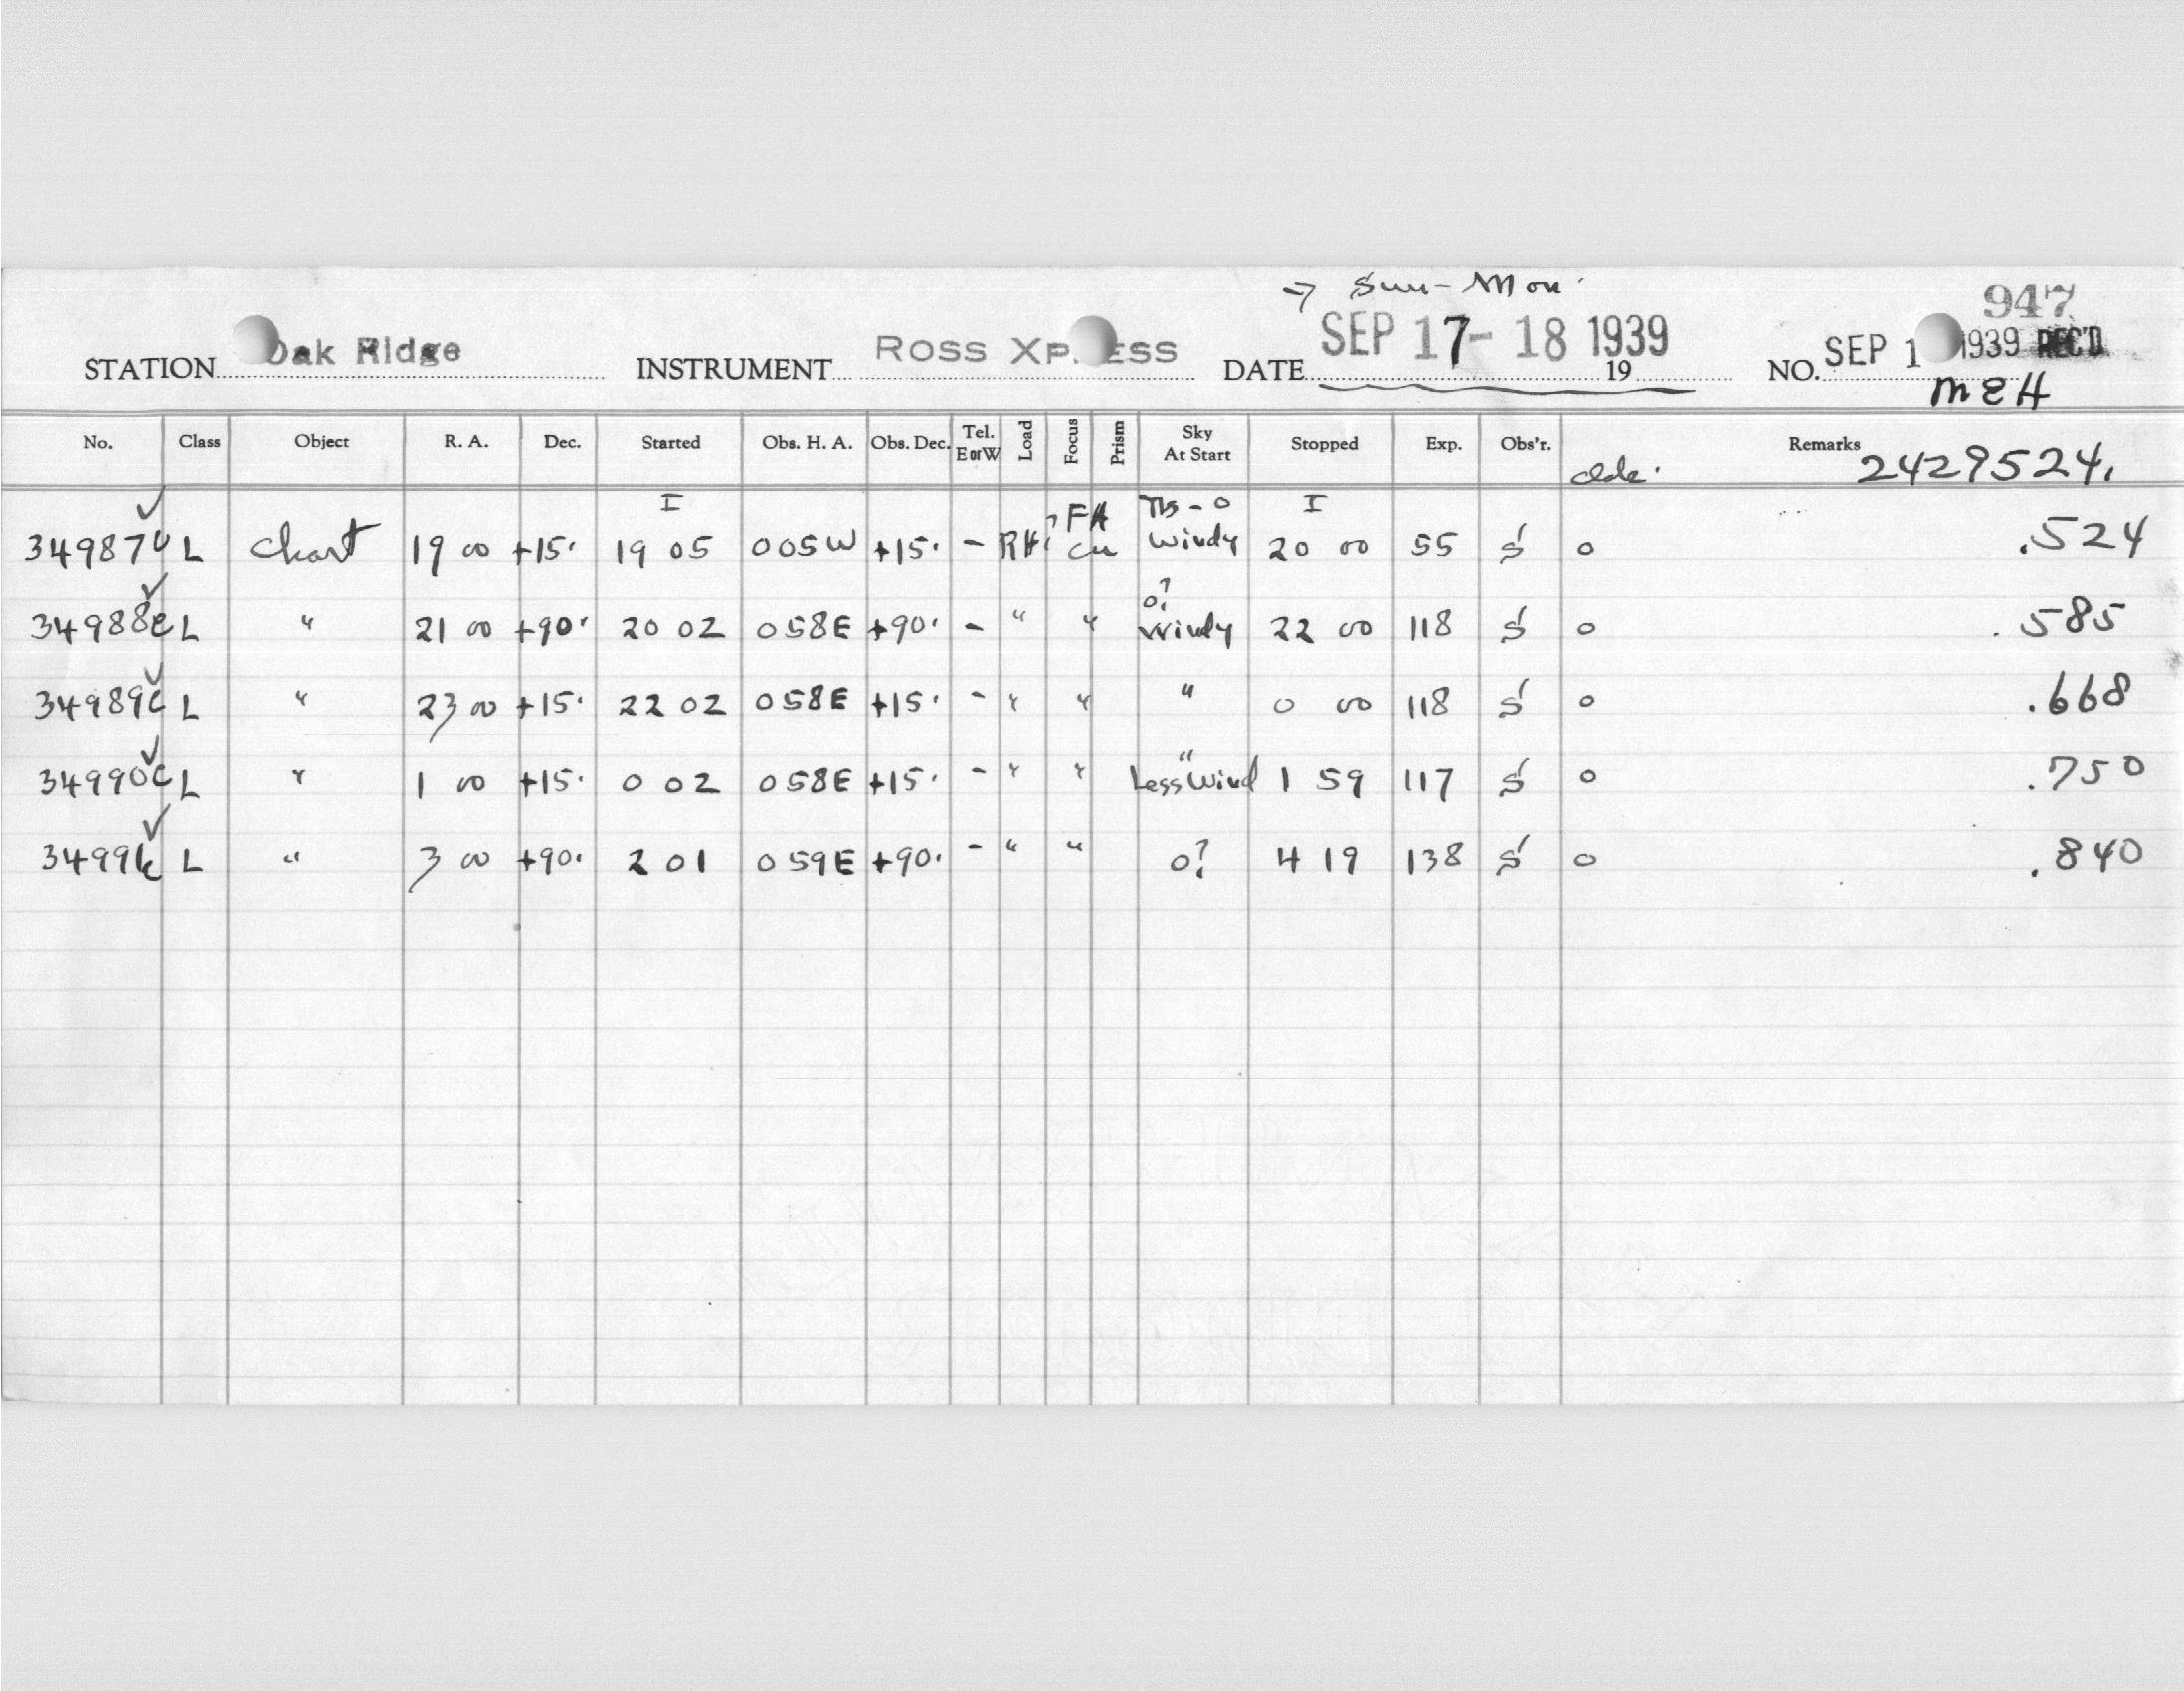 → Sun-Mon.
947
STATION Oak Ridge INSTRUMENT ROSS XP ESS DATE SEP 17-18 1939 19 NO. SEP 1 1939 REC'D
MEH
No. Class Object R. A. Dec. Started Obs. H. A. Obs. Dec. Tel. E or W Load Focus Prism Sky At Start Stopped Exp. Obs'r. Remarks
2429524.
I FA I
34987 L Chart 19 00 +15· 19 05 005W +15· - RH Windy 20 00 55 S 0 .524
34988c L " 21 00 +90· 20 02 058E +90· - " " 0? Windy 22 00 118 S 0 .585
34989c L " 23 00 +15· 22 02 058E +15· - " " " 0 00 118 S 0 .668
34990c L " 1 00 +15· 0 02 058E +15· - " " " Less Wind 1 59 117 S 0 .750
34991c L " 3 00 +90· 2 01 059E +90· - " " 0? 4 19 138 S 0 .840